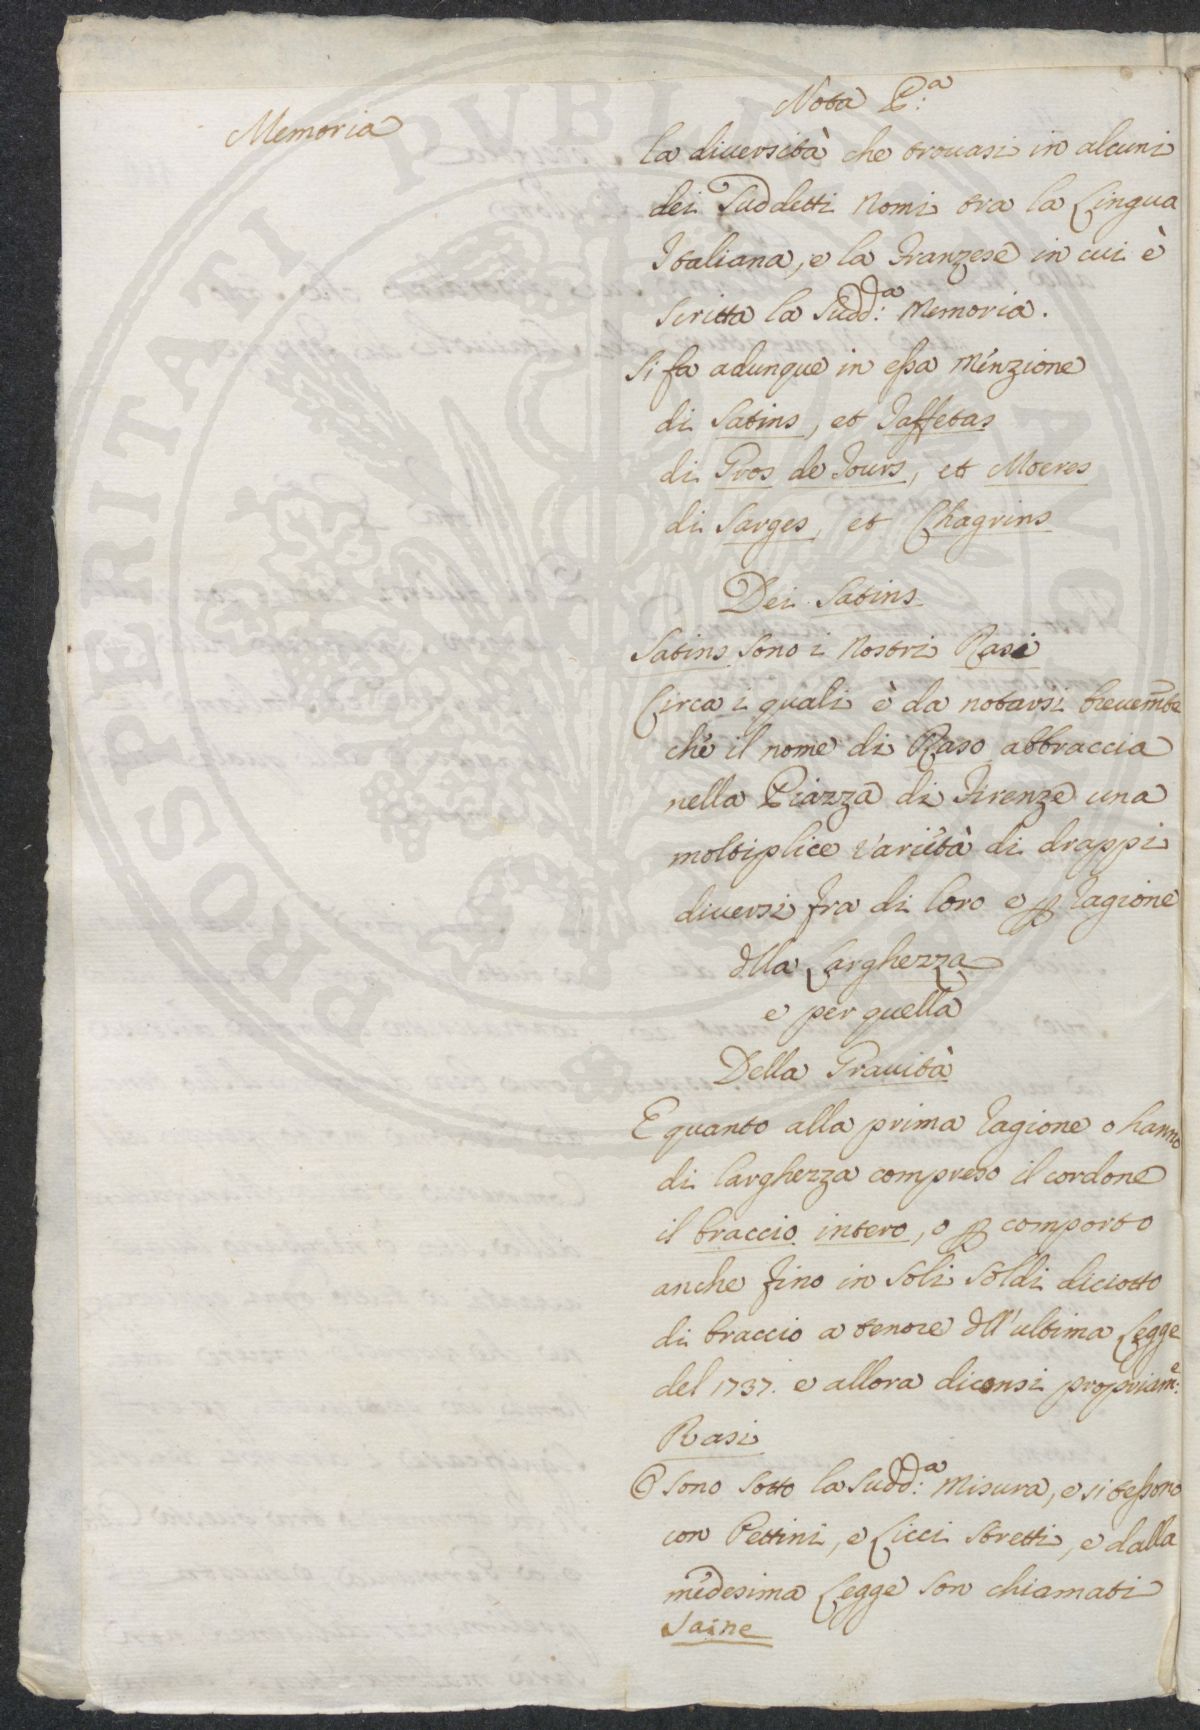 Memoria
Nota P:a
La diversità che trovasi in alcuni
dei Suddetti Nomi tra la Lingua
Italiana, e la Franzese in cui è
Scritta la Sudd:a Memoria.
Si fa adunque in essa Menzione
di Satins, et Taffetas
di Gros de Tours, et Moeres
di Sarges, et Chagrins
Dei Satins
Satins Sono i Nostri Rasi
Circa i quali è da notarsi brevemte
che il nome di Raso abbraccia
nella Piazza di Firenze una
moltiplice Varietà di drappi
diversi fra di loro e p ragione
dlla Larghezza
e per quella
Della Gravità
E quanto alla prima ragione o hanno
di larghezza compreso il cordone
il braccio intero, o p comporto
anche fino in Soli Soldi diciotto
di braccio a tenore dll'ultima Legge
del 1737. e allora diconsi propriam:e
Rasi
O Sono Sotto la Sudd:a Misura, e si tessono
con Pettini, e Licci Stretti, e dalla
medesima Legge Son chiamati
Saine
PROSPERITATI PVBLI